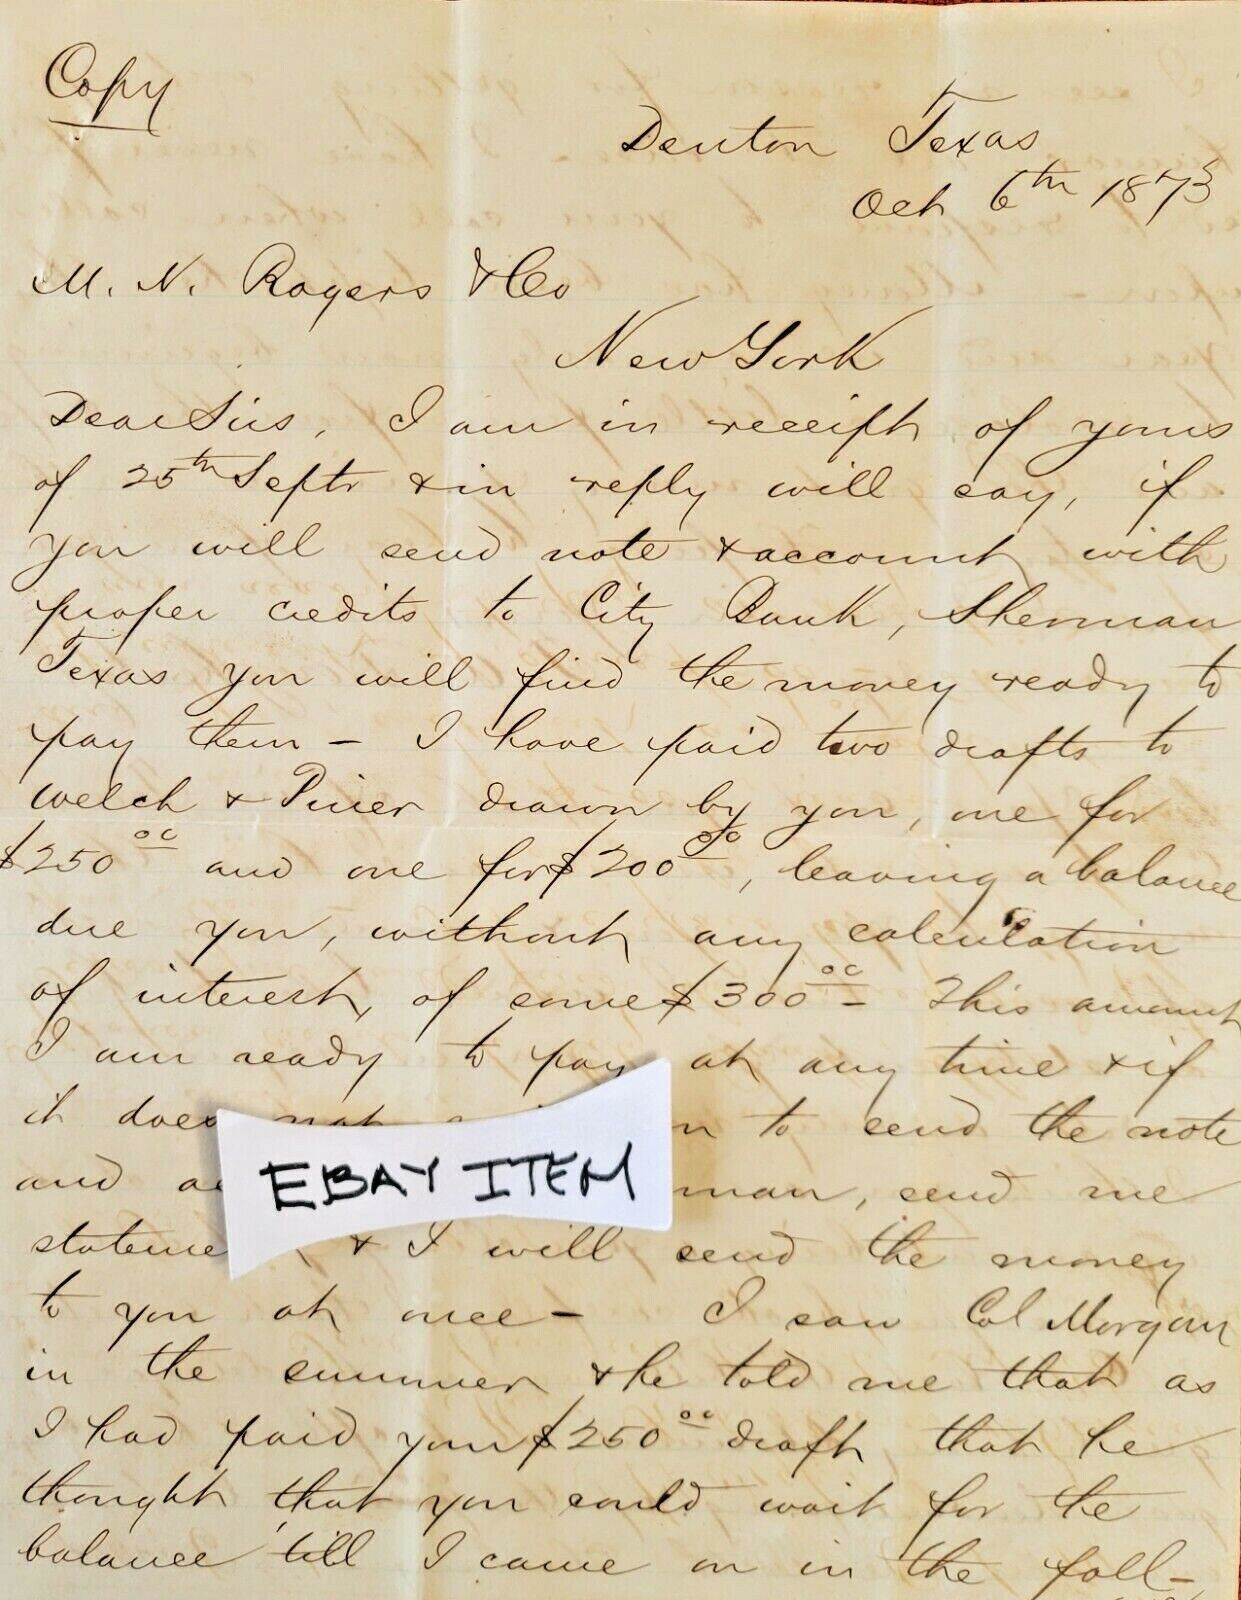 Copy
Denton Texas
Oct 6th 1873
M. N. Rogers & Co
New York
Dear Sirs, I am in receipt of yours
of 25th Septr & in reply will say, if
you will send note & account with
proper credits to City Bank, Sherman
Texas you will find the money ready to
pay them – I have paid two drafts to
Welch & Piner drawn by you, one for
$250 00 and one for $200 00, leaving a balance
due you, without any calculation
of interest, of some $300 00 – This amount
I am ready to pay at any time & if
it does not to send the note
and man, send me
& I will send the money
to you at once – I saw Col Morgan
in the summer & he told me that as
I had paid your $250 00 draft that he
thought that you could wait for the
balance till I came on in the fall –
EBAY ITEM